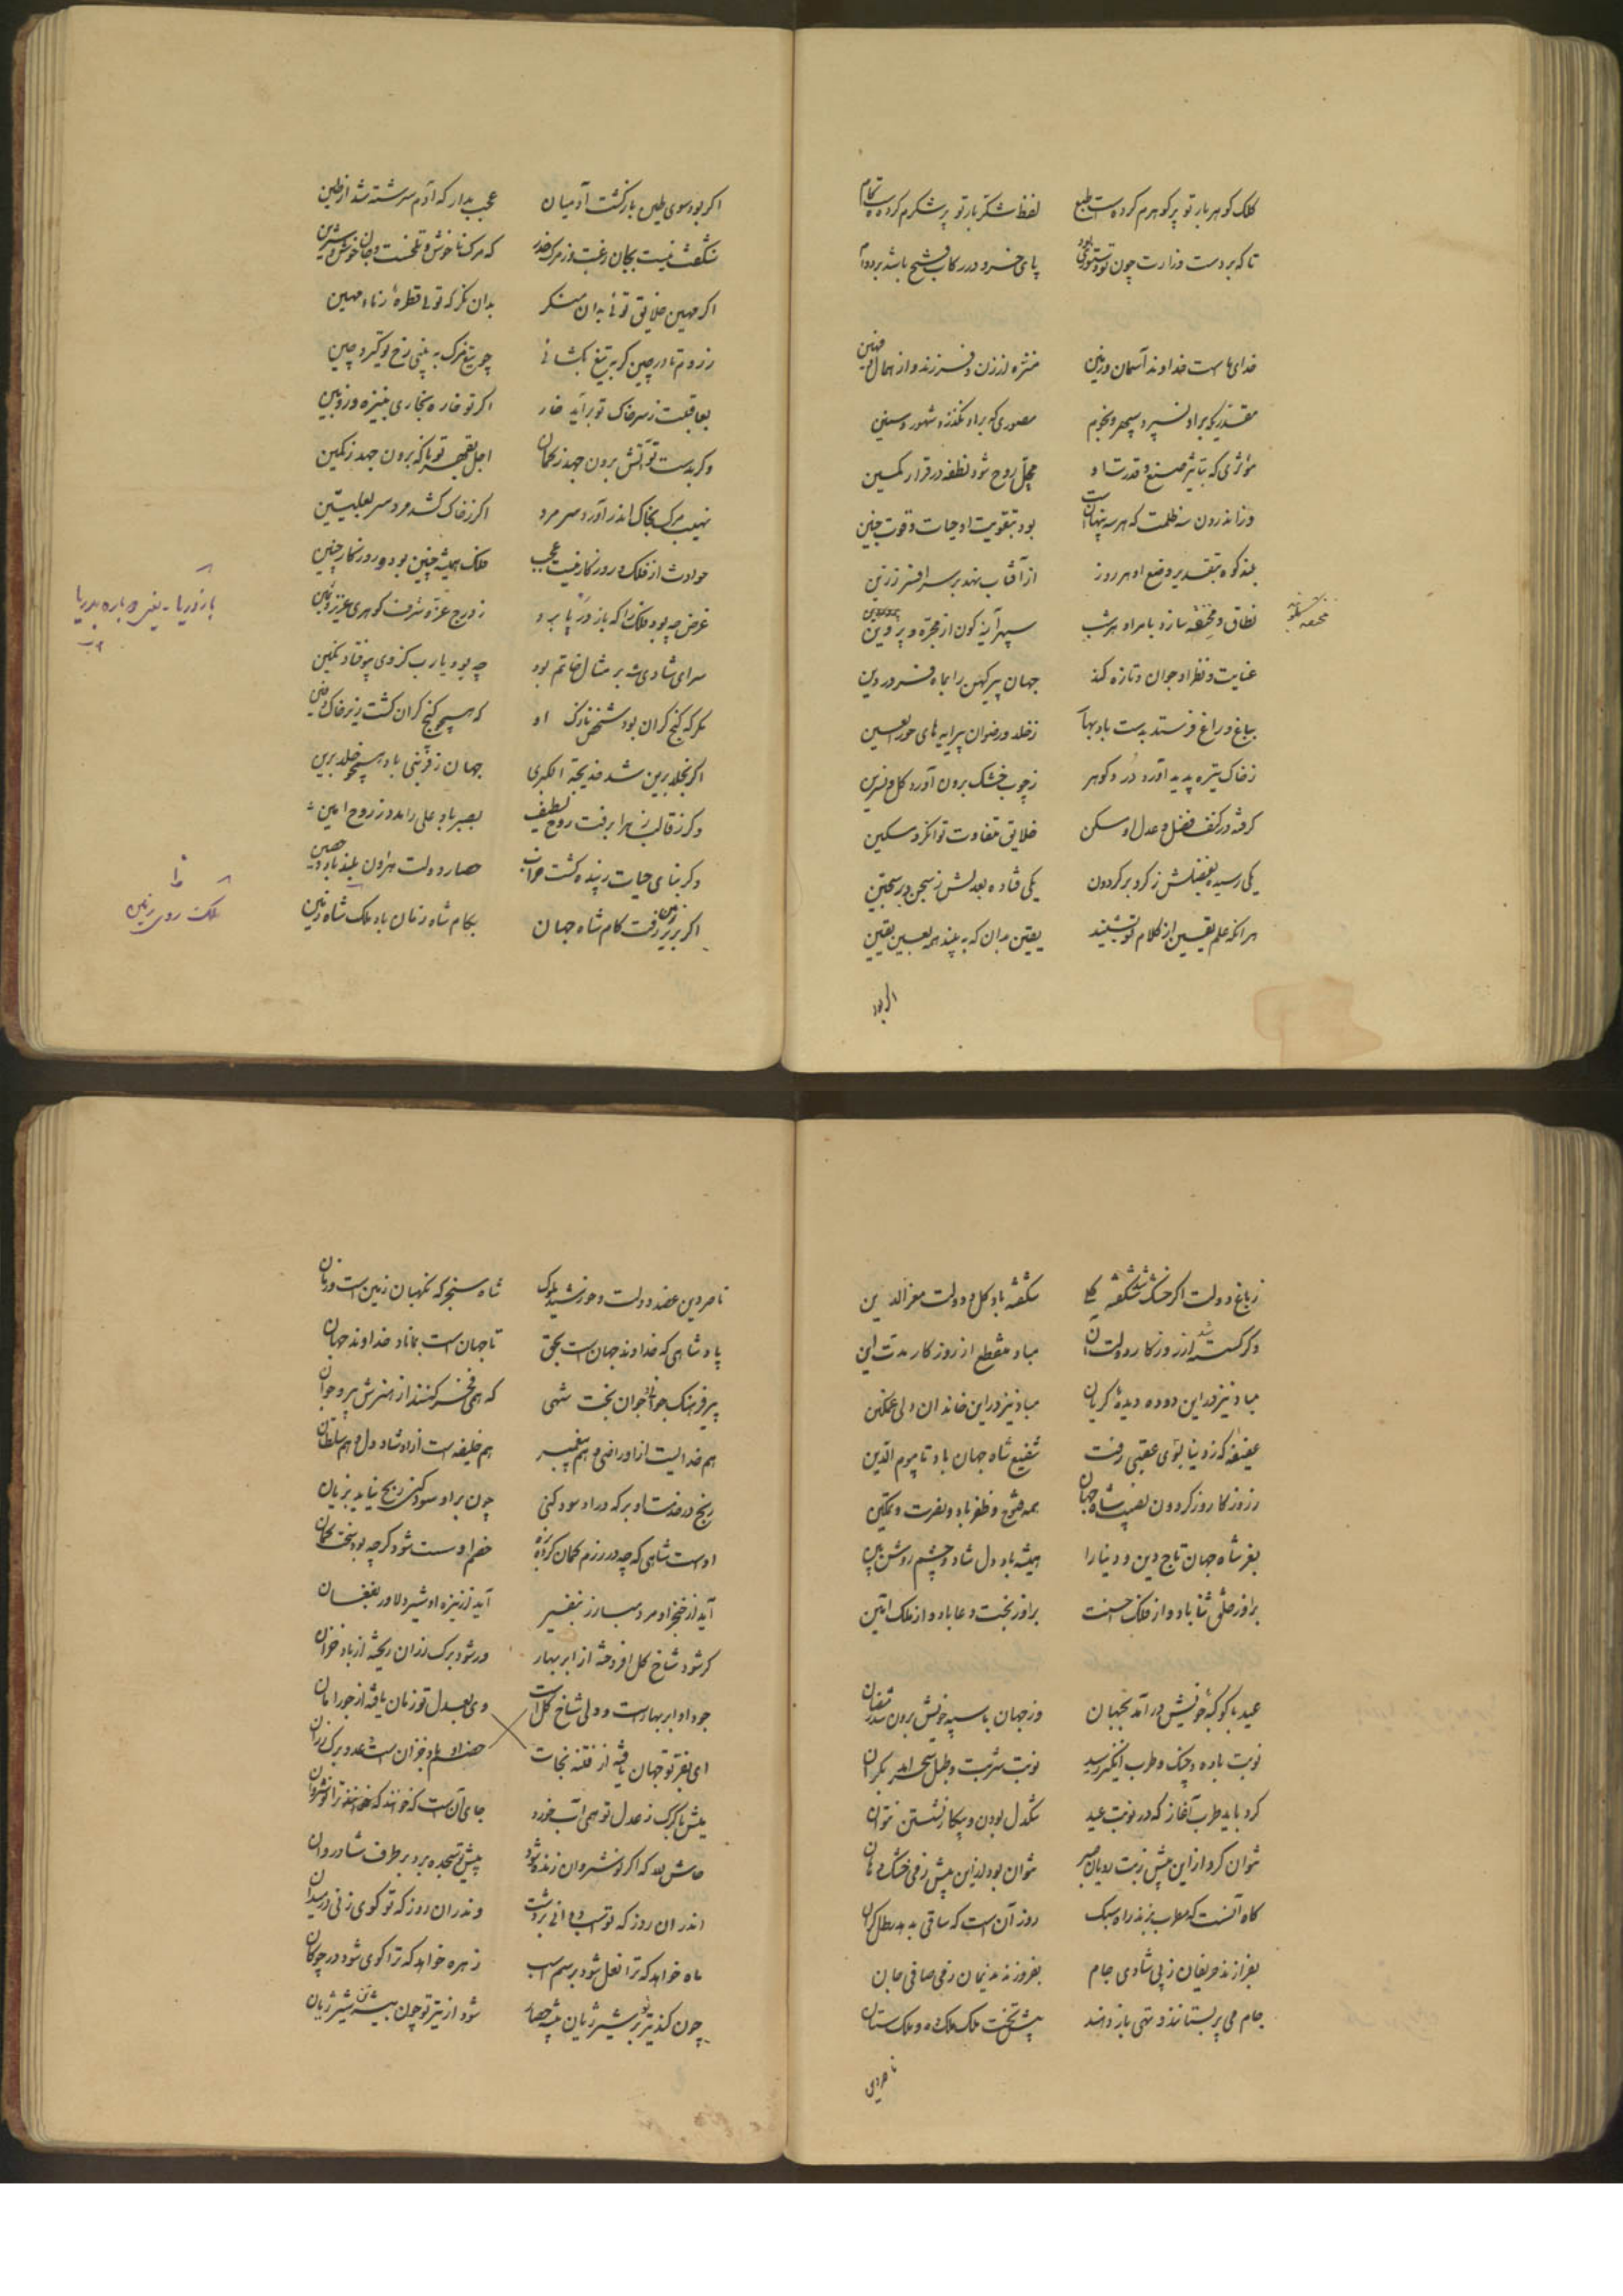 کلک کوهر بار تو پر کوهرم کرده است طبع لفظ شکر بار تو پر شکرم کرده است کام
تا که بر دست وزارت چون تو دستوری بود پای خسرو در رکاب فتح باشد بر دوام
خدای ماست خداوند آسمان و زمین منزه از زن و فرزند و از همال و مهین
مقدری که بر او نسپرد سپهر و نجوم مصوری که بر او نگذرد شهور و سنین
مؤثری که بتاثیر صنع و قدرت او محل روح شود نطفه در قرار مکین
وز اندرون سه ظلمت که هر سه پنهانست بود بتقویت او حیات و قوت جنین
بلند کوه بتقدیر وضع او هر روز از آفتاب نهد بر سر افسر زرین
نطاق و مخنقه سازد بامر او هر شب سپهر آینه کون از مجره و پروین
مخنقه
عنایت و نظر او جوان و تازه کند جهان پیر کهن را بماه فروردین
بباغ و راغ فرستد بدست باد بهار ز خلد و رضوان پیرایه های حور العین
ز خاک تیره پدید آورد در و کوهر ز چوب خشک برون آورد کل و نسرین
کرفته در کنف فضل و عدل او مسکن خلایق متفاوت توانکر و مسکین
یکی رسیده بفضلش ز کرد بر کردون یکی فتاده بعدلش ز سجن در سجین
هر آنکه علم یقین از کلام او شنید یقین بدان که به بیند همه بعین یقین
اگر بود
اکر بود سوی طین بازکشت آدمیان عجب مدار که آدم سرشته شد از طین
شکفت نیست بجان رغبت و ز مرک حذر که مرک ناخوش و تلخست و جان خوش و شیرین
اکر مهین خلایق توئی بدان منکر بدان نکر که توئی قطره ز ماء مهین
ز روم تا در چین کر به تیغ بکشائی چو تیغ مرک به بینی رخ تو کیرد چین
اکر تو خاره بخاری بنیزه و زوبین بعاقبت ز سر خاک تو برآید خار
وکر بدست تو آتش برون جهد ز کمان اجل بقهر تو ناکه برون جهد ز کمین
نهیب مرک بخاک اندر آورد سر مرد اکر ز خاک کشد مرد سر بعلیین
حوادث از فلک و روزکار نیست عجب فلک همیشه چنین بود و روزکار چنین
غرض چه بود فلک را که باز در پا برد ز درج عز و شرف کوهری عزیز و ثمین
باز دریا - یعنی دوباره بدریا
سرای شادی شه بر مثال خاتم بود چه بود یا رب کز وی بیوفتاد نکین
مکر که کنج کران بود شخص نازک او که همچو کنج کران کشت زیر خاک دفین
اکر بخلد برین شد خدیجة الکبری جهان ز قربتی باد همچو خلد برین
وکر ز قالب زهرا برفت روح لطیف بصبر باد علی را مدد ز روح امین
وکر بنای حیات زبیده کشت خراب حصار دولت هارون بلند باد و حصین
اکر بزیر زمین رفت کام شاه جهان بکام شاه زمان باد ملک شاه زمین
ملک روی زمین
ز باغ دولت اکر خشک شد شکفته کلی شکفته باد کل و دولت معز الدین
وکر کسسته شد از روزکار دولت آن مباد منقطع از روزکار مدت این
مباد نیز در این دوده دیده کریان مباد نیز در این خاندان دلی غمکین
عفیفه که ز دنیا بسوی عقبی رفت شفیع شاه جهان باد تا بیوم الدین
ز روزکار و ز کردون نصیب شاه جهان همه فتوح و ظفر باد و نصرت و تمکین
بفر شاه جهان تاج دین و دنیا را همیشه باد دل شاد و چشم روشن بین
بر او ز خلق ثنا باد و از فلک احسنت بر او ز بخت دعا باد و از ملک آمین
عید با کوکبه خویش درآمد بجهان وز جهان با سپه خویش برون شد رمضان
نوبت باده و چنک و طرب اینک برسید نوبت شربت و طبل سحر آمد بکران
کرد باید طرب آغاز که در نوبت عید تنکدل بودن و بیکار نشستن نتوان
نتوان کرد از این بیش ز بت رویان صبر نتوان بود از این بیش ز می خشک دهان
کاه آنست که مطرب بزند راه سبک روز آن است که ساقی بدهد رطل کران
بفرازند حریفان ز پی شادی جام بفروزند ندیمان ز می صافی جان
جام می پر بستانند و تهی باز دهند پیش تخت ملک ملک ده و ملک ستان
ناصر دین
ناصر دین عضد دولت و خورشید ملوک شاه سنجر که نکهبان زمین است و زمان
پادشاهی که خداوند جهان است بحق تا جهان است بماناد خداوند جهان
پیر فرهنک جوانمرد جوان بخت شهی که همی فخر کنند از هنرش پیر و جوان
هم خدایست از او راضی و هم پیغمبر هم خلیفه است از او شاد دل و هم سلطان
رنج در خدمت او بر که در او سود کنی چون بر او سود کنی رنج نیاید بزیان
اوست شاهی که چه در رزم کمان کرد بزه خصم او سست شود کرچه بود سخت کمان
آید از خنجر او مرد مبارز بنفیر آید از نیزه او شیر دلاور بفغان
کر شود شاخ کل افروخته از ابر بهار ور شود برک رزان ریخته از باد خزان
جود او ابر بهار است و ولی شاخ کل است وی بعدل تو زمان یافته از جور امان
ای بفر تو جهان یافته از فتنه نجات خشم او باد خزان است و عدو برک رزان
میش با کرک ز عدل تو همی آب خورد جای آن است که خوانند ترا نوشروان
حاش لله که اکر نوشروان زنده شود پیش تو سجده برد بر طرف شادروان
اندر آن روز که تو اسب دوانی بر دشت وندر آن روز که تو کوی زنی در میدان
ماه خواهد که ترا نعل شود بر سم اسب زهره خواهد که ترا کوی شود در چوکان
چون کند تیر تو بر شیر ژیان بیشه حصار شود از تیر تو چون بیشه تن شیر ژیان